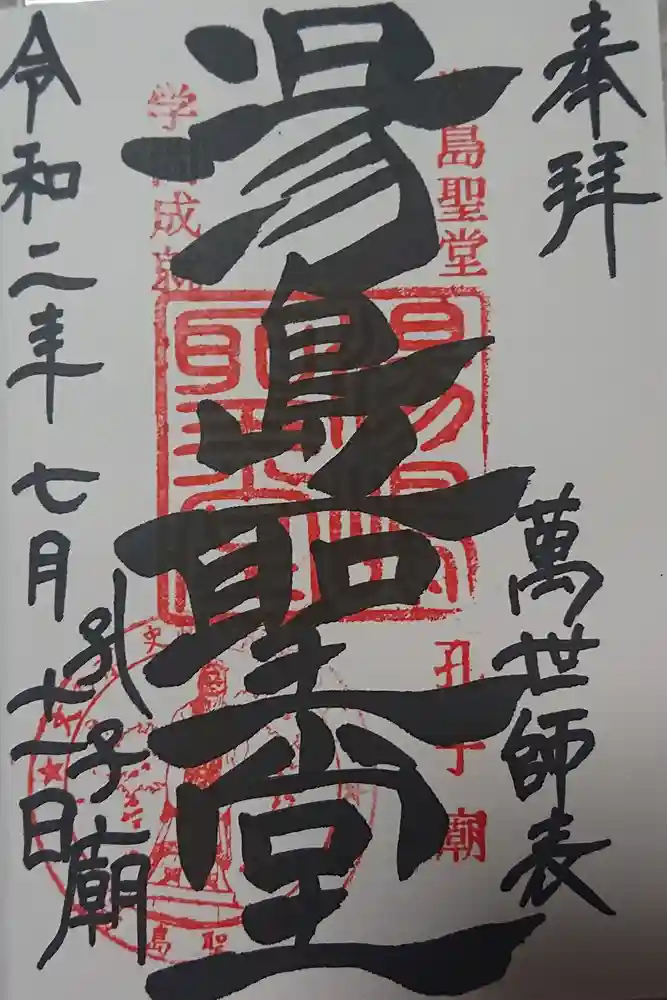 奉拝
萬世師表
島聖堂
孔子廟
湯島聖堂
学 成就
令和二年七月十二日
孔子廟
史
島聖